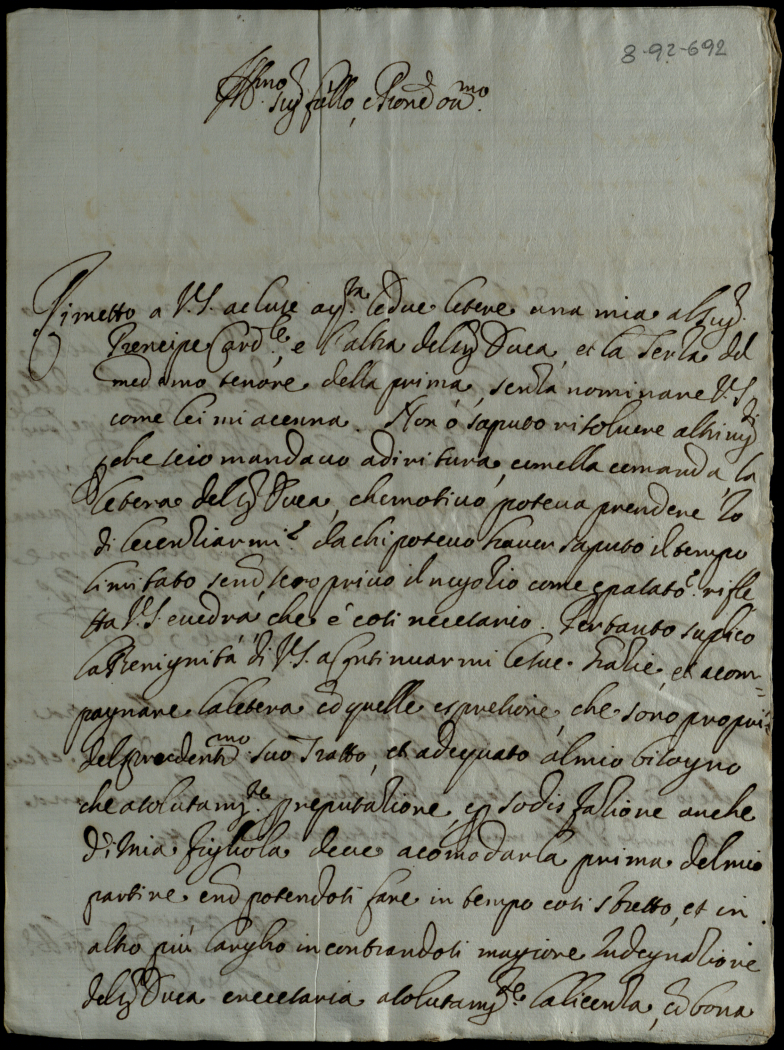 8-9?-692
Ill.mo Sig.r fr̃ello, e Pron̄e oss.mo
Rimetto a V.S. acluse a q.ta le due letere una mia al Sig.r
Prencipe Card.le, e l'altra del Sig. Duca, et la Terza del
medemo tenore della prima, senza nominare V.S.
come lei mi acenna. Non ò saputo risoluere altrim.ti
che se io mandauo adiritura, come lla comanda, la
letera del Sig. Duca, che motiuo poteua prendere Io
di licenziarmi? da chi poteuo hauer saputo il tempo
limitato send.
V.S. e uedrà che è così necesario. Pertanto suplico
la Benignità di V.S. a Continuarmi le sue Grazie, et acom=
pagnare la letera cō quelle espresione, che sono propri=
del prudentis.mo suo Tratto, et adequato al mio bisogno
che asolutam.te p reputazione, e p sodisfazione anche
di Mia figliola deue acomodarla prima del mio
partire e nō potendosi fare in tempo così stretto, et in
altro più largho incontrandosi magiore Indegnazione
del Sig. Duca e necesaria asolutam.te la licenza, cō bona